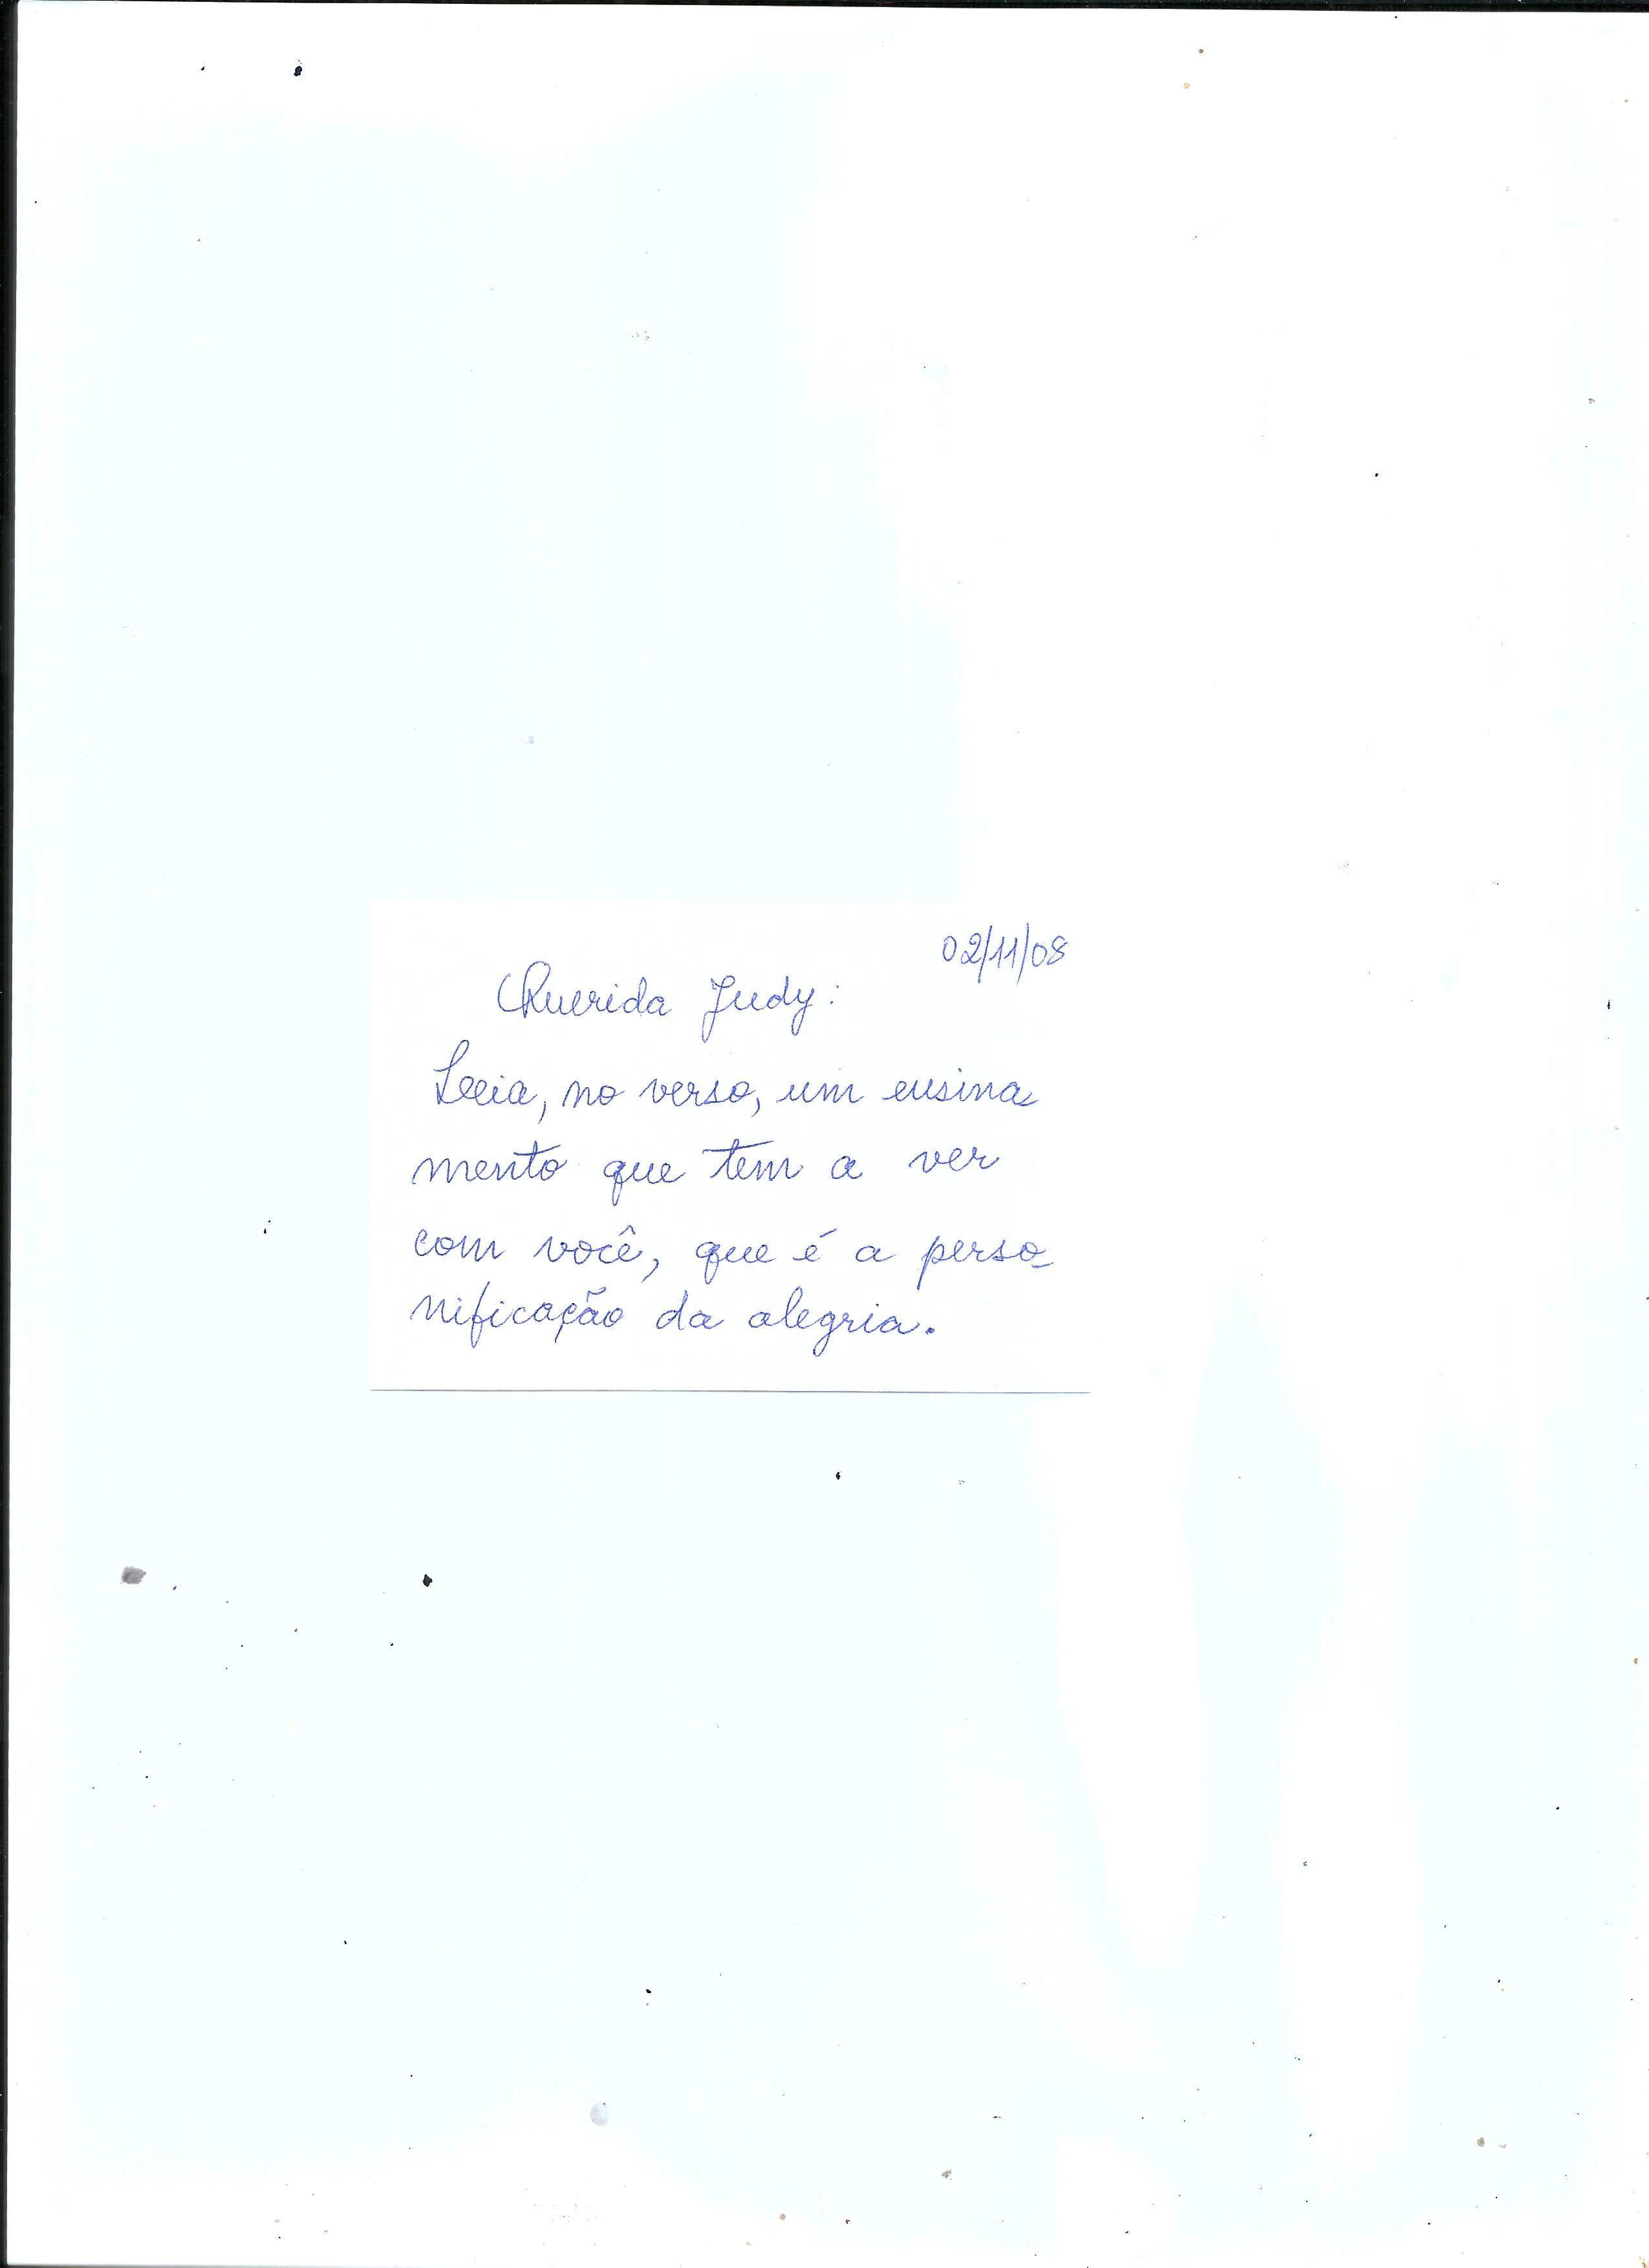 02/11/08
Querida Judy:
Leia, no verso, um ensina
mento que tem a ver
com você, que é a perso_
nificação da alegria.